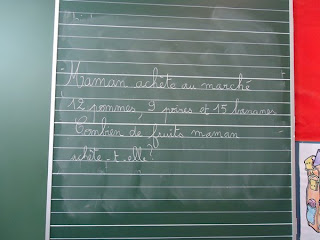 Maman achète au marché
12 pommes, 9 poires et 15 bananes
Combien de fruits maman
achète-t-elle?